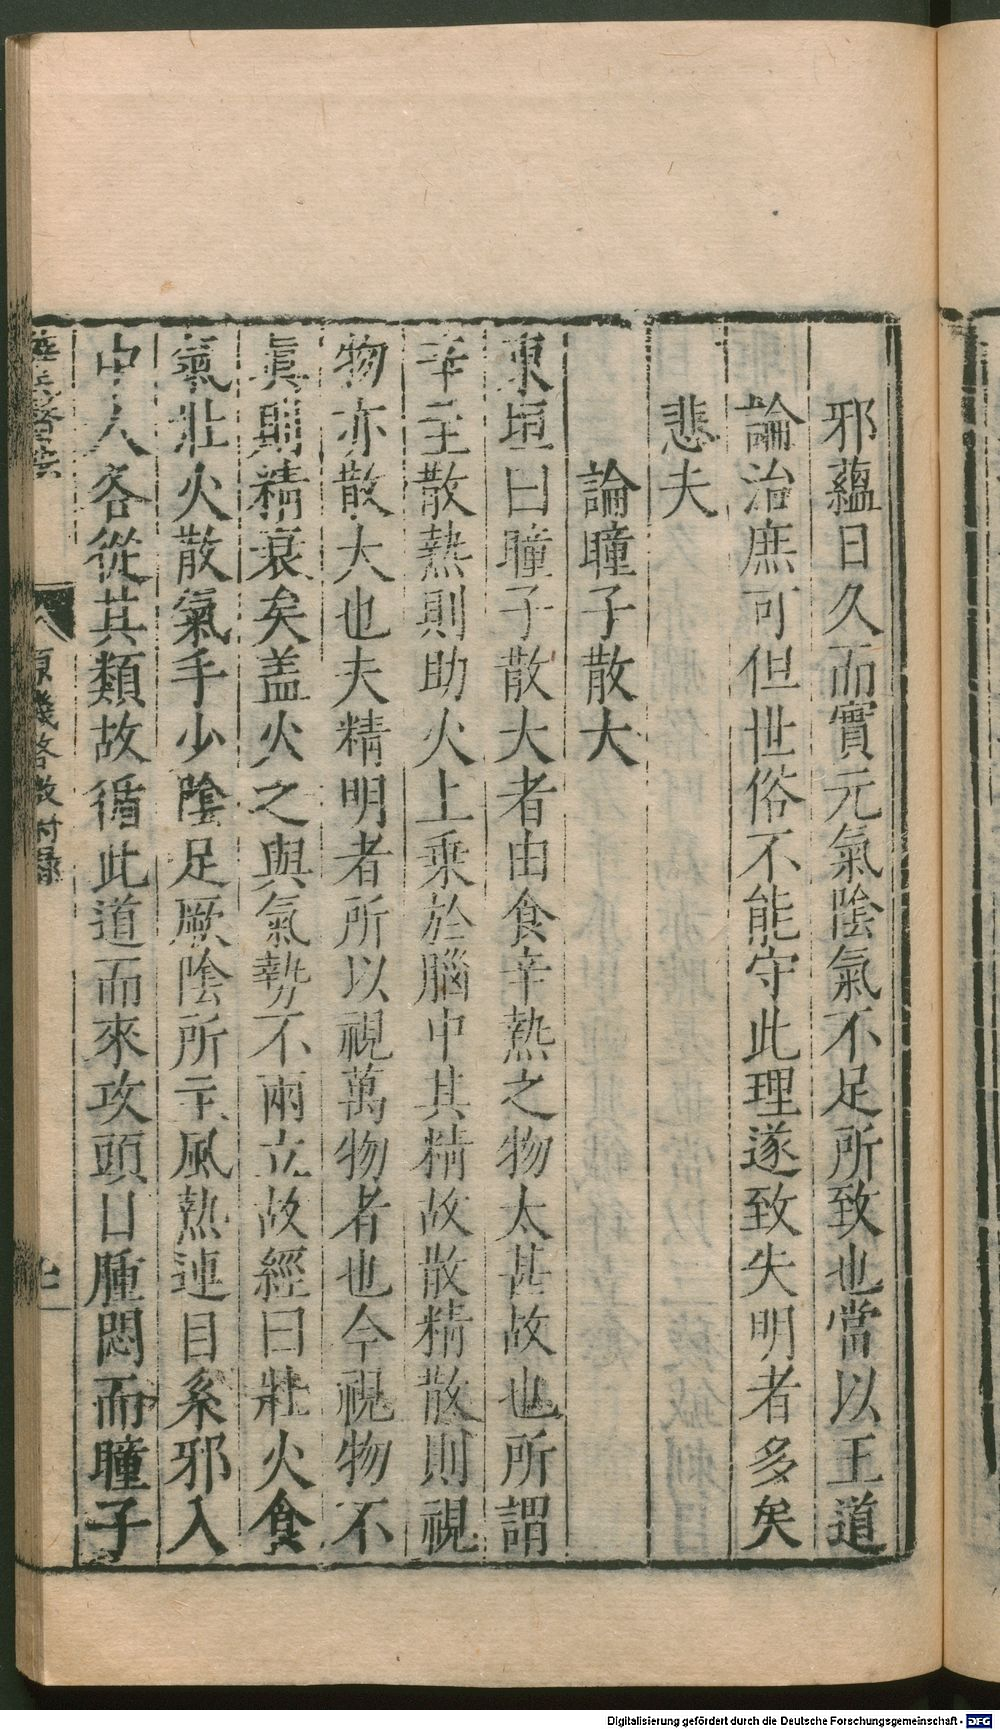 邪蘊日久而實元氣陰氣不足所致也當以王道
論治庶可但世俗不能守此理遂致失明者多矣
悲夫
論瞳子散大
東垣曰瞳子散大者由食辛熱之物太甚故也所謂
辛主散熱則助火上乗於腦中其精故散精散則視
物亦散大也夫精明者所以視萬物者也今視物不
眞則精衰矣盖火之與氣勢不兩立故經曰壯火食
氣壯火散氣手少陰足厥陰所主風熱連目系邪入
中人各從其類故循此道而來攻頭目腫悶而瞳子
原機啓微附録
Digitalisierung gefördert durch die Deutsche Forschungsgemeinschaft - DFG